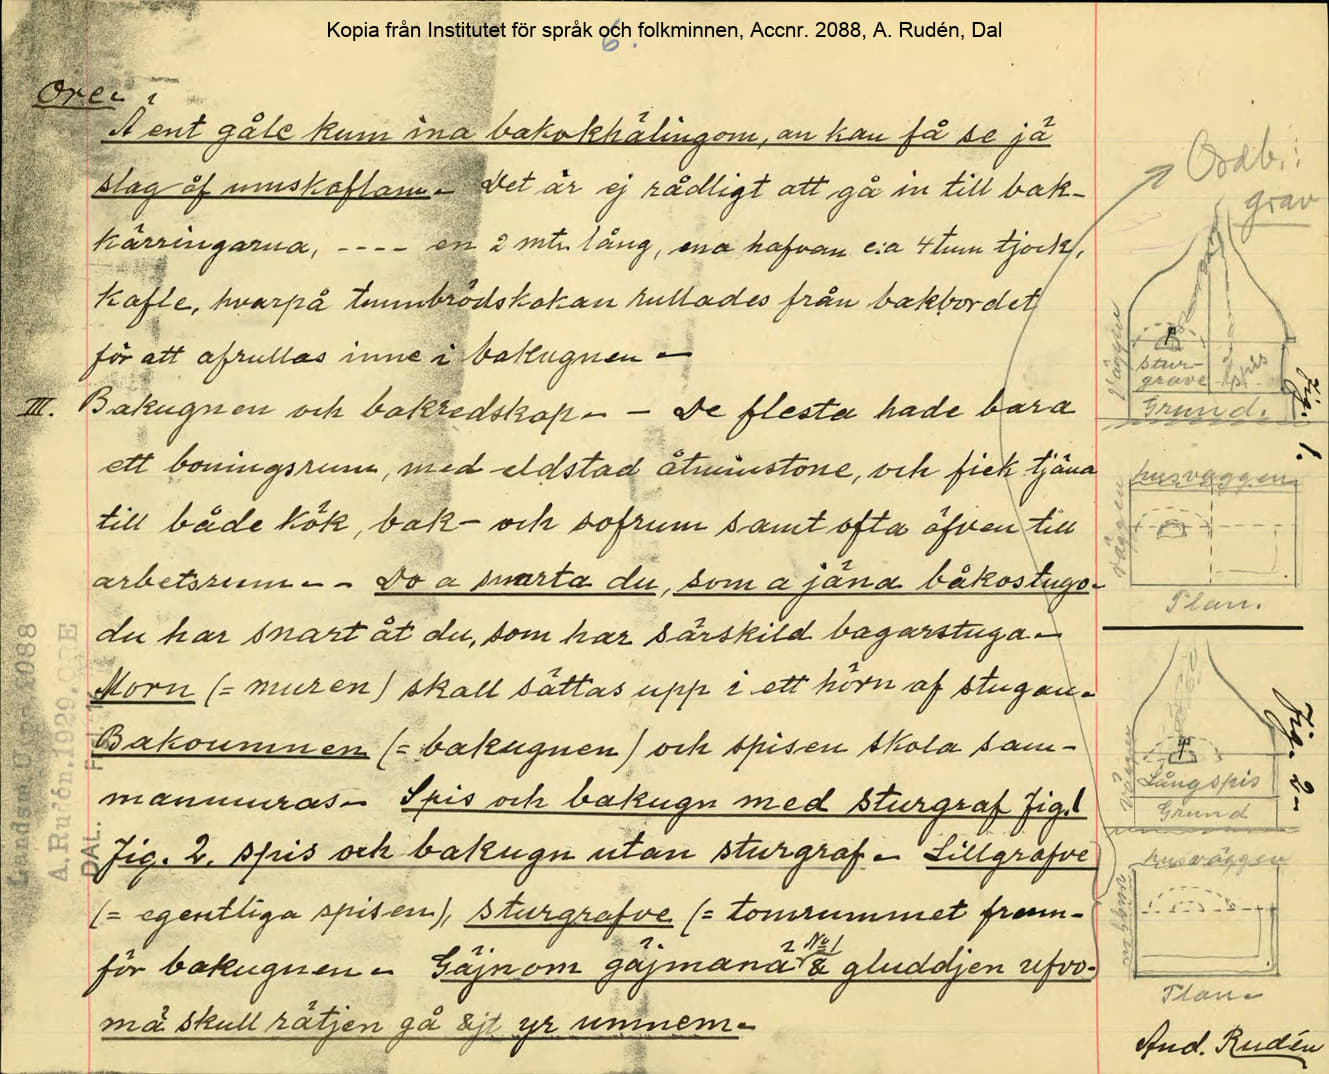 Kopia från Institutet för språk och folkminnen, Accnr. 2088, A. Rudén, Dal
6.
Ore.
Ä ent gåle kum ina bakokhälingom, an kan få se jä
slag åf umskaflam. Det är ej rådligt att gå in till bak-
kärringarna, ---- en 2 mtr. lång, ena hafvan c:a 4 tum tjock,
kafle, hvarpå tunnbrödskakan rullades från bakbordet
för att afrullas inne i bakugnen -
III. Bakugnen och bakredskap. - De flesta hade bara
ett boningsrum, med eldstad åtminstone, och fick tjäna
till både kök, bak- och sofrum samt ofta äfven till
arbetsrum. - Do a snarta du, som a jäna båkostugo.
du har snart åt du, som har särskild bagarstuga.
Morn (= muren) skall sättas upp i ett hörn af stugan.
Bakoumnen (= bakugnen) och spisen skola sam-
manmuras. Spis och bakugn med sturgraf Fig. 1
Fig. 2. spis och bakugn utan sturgraf. Lillgrafve
(= egentliga spisen), sturgrafve (= tomrummet fram-
för bakugnen. Gäjnom gäjmanä No 1 & gluddjen ufvo-
mä skull rätjen gå &jt yr umnem.
Landsm. U. 2088
A. Rudén. 1929.
DAL.
Ordb.:
grav
Väggen
stur-
grave
spis
Grund.
Fig. 1.
husväggen
Väggen
Plan.
Fig. 2.
Väggen
Långspis
Grund
husväggen
Väggen
Plan.
And. Rudén